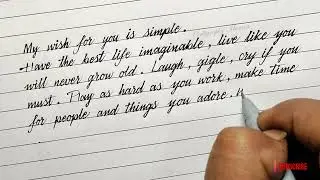 My wish for you is simple.
Have the best life imaginable, live like you
will never grow old. Laugh, gigle, cry if you
must. Play as hard as you work, make time
for people and things you adore.
SUBSCRIBE